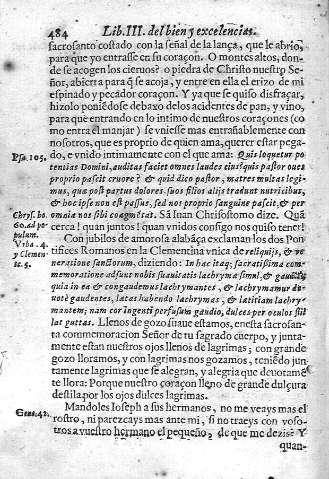 484 Lib. III. del bien y excelencias.
sacrosanto costado con la señal de la lança, que le abrio,
para que yo entrasse en su coraçon. O montes altos, don-
de se acogen los cieruos! o piedra de Christo nuestro Se-
ñor, abierta para q̃ se acoja, y entre en ella el erizo de mi
espinado y pecador coraçon. Y ya que se quiso disfraçar,
hizolo poniédose debaxo delos acidentes de pan, y vino,
para que entrando en lo intimo de nuestros coraçones (co
mo entra el manjar) se vniesse mas entrañablemente con
nosotros, que es proprio de quien ama, querer estar pega-
Psa. 105.
do, e vnido intimamente con el que ama: Quis loquetur po
tentias Domini, auditas faciet omnes laudes eius? quis pastor oues
proprio pascit cruore? & quid dico pastor, matres multas legi-
mus, quæ post partus dolores suos filios alijs tradunt nutricibus,
& hoc ipse non est passus, sed nos proprio sanguine pascit, & per
Chrys. ho.
60. ad po
pulum.
omnia nos sibi coagmẽtat. Sã Iuan Chrisostomo dize. Quã
cerca! quan juntos! quan vnidos consigo nos quiso tener!
Vrba. 4.
y Clemen
te. 5.
Con jubilos de amorosa alabãça exclaman los dos Pon
tifices Romanos en la Clementina vnica de reliquijs, & ve
neratione sanctorum, diziendo: In hac itaq; sacratissima com-
memoratione adsunt nobis suauitatis lachrymæ simul, & gaudiũ;
quia in ea & congaudemus lachrymantes, & lachrymamur de-
uotè gaudentes, lætas habendo lachrymas, & lætitiam lachry-
mantem; nam cor ingenti perfusum gaudio, dulces per oculos stil
lat guttas. Llenos de gozo suaue estamos, en esta sacrosan-
ta commemoracion Señor de tu sagrado cuerpo, y junta-
mente estan nuestros ojos llenos de lagrimas; con grande
gozo lloramos, y con lagrimas nos gozamos, teniẽdo jun
tamente lagrimas que se alegran, y alegria que deuotamẽ
te llora: Porque nuestro coraçon lleno de grande dulçura
destila por los ojos dulces lagrimas.
Genes. 42.
Mandoles Ioseph a sus hermanos, no me veays mas el
rostro, ni parezcays mas ante mi, si no traeys con voso-
tros a vuestro hermano el pequeño, de que me dezis? Y
quan-